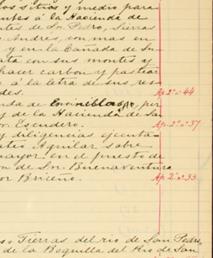 los sitios y medio para
á la Hacienda de
tes de Sn. Pedro, Sierra
Andrés, con mas en
y en la Cañada de Sn
ta con sus montes y
hacer carbon y pastear
á la letra de sus
des. Ap. 2º 44
nda de per
y de la Hacienda de San
or. Escudero. Ap. 2º 37
y diligencias ejecuta
atio Aguilar sobre
mayor en el puesto de
on de Sn. Buenaventura
or Briceño. Ap. 2º 33
Tierras del rio de San Pedro,
de la Boquilla del Rio de San